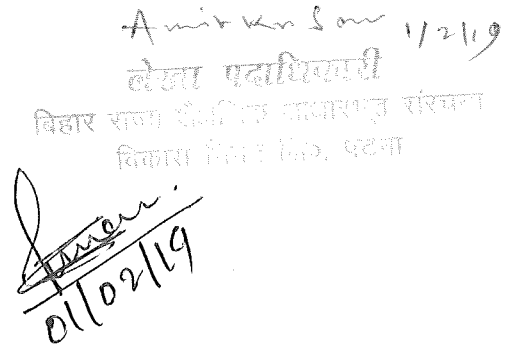 Amit Kr Sow 1/2/19
लेखा पदाधिकारी
बिहार राज्य शैक्षणिक आधारभूत संरचना
विकास निगम लि०, पटना
01/02/19